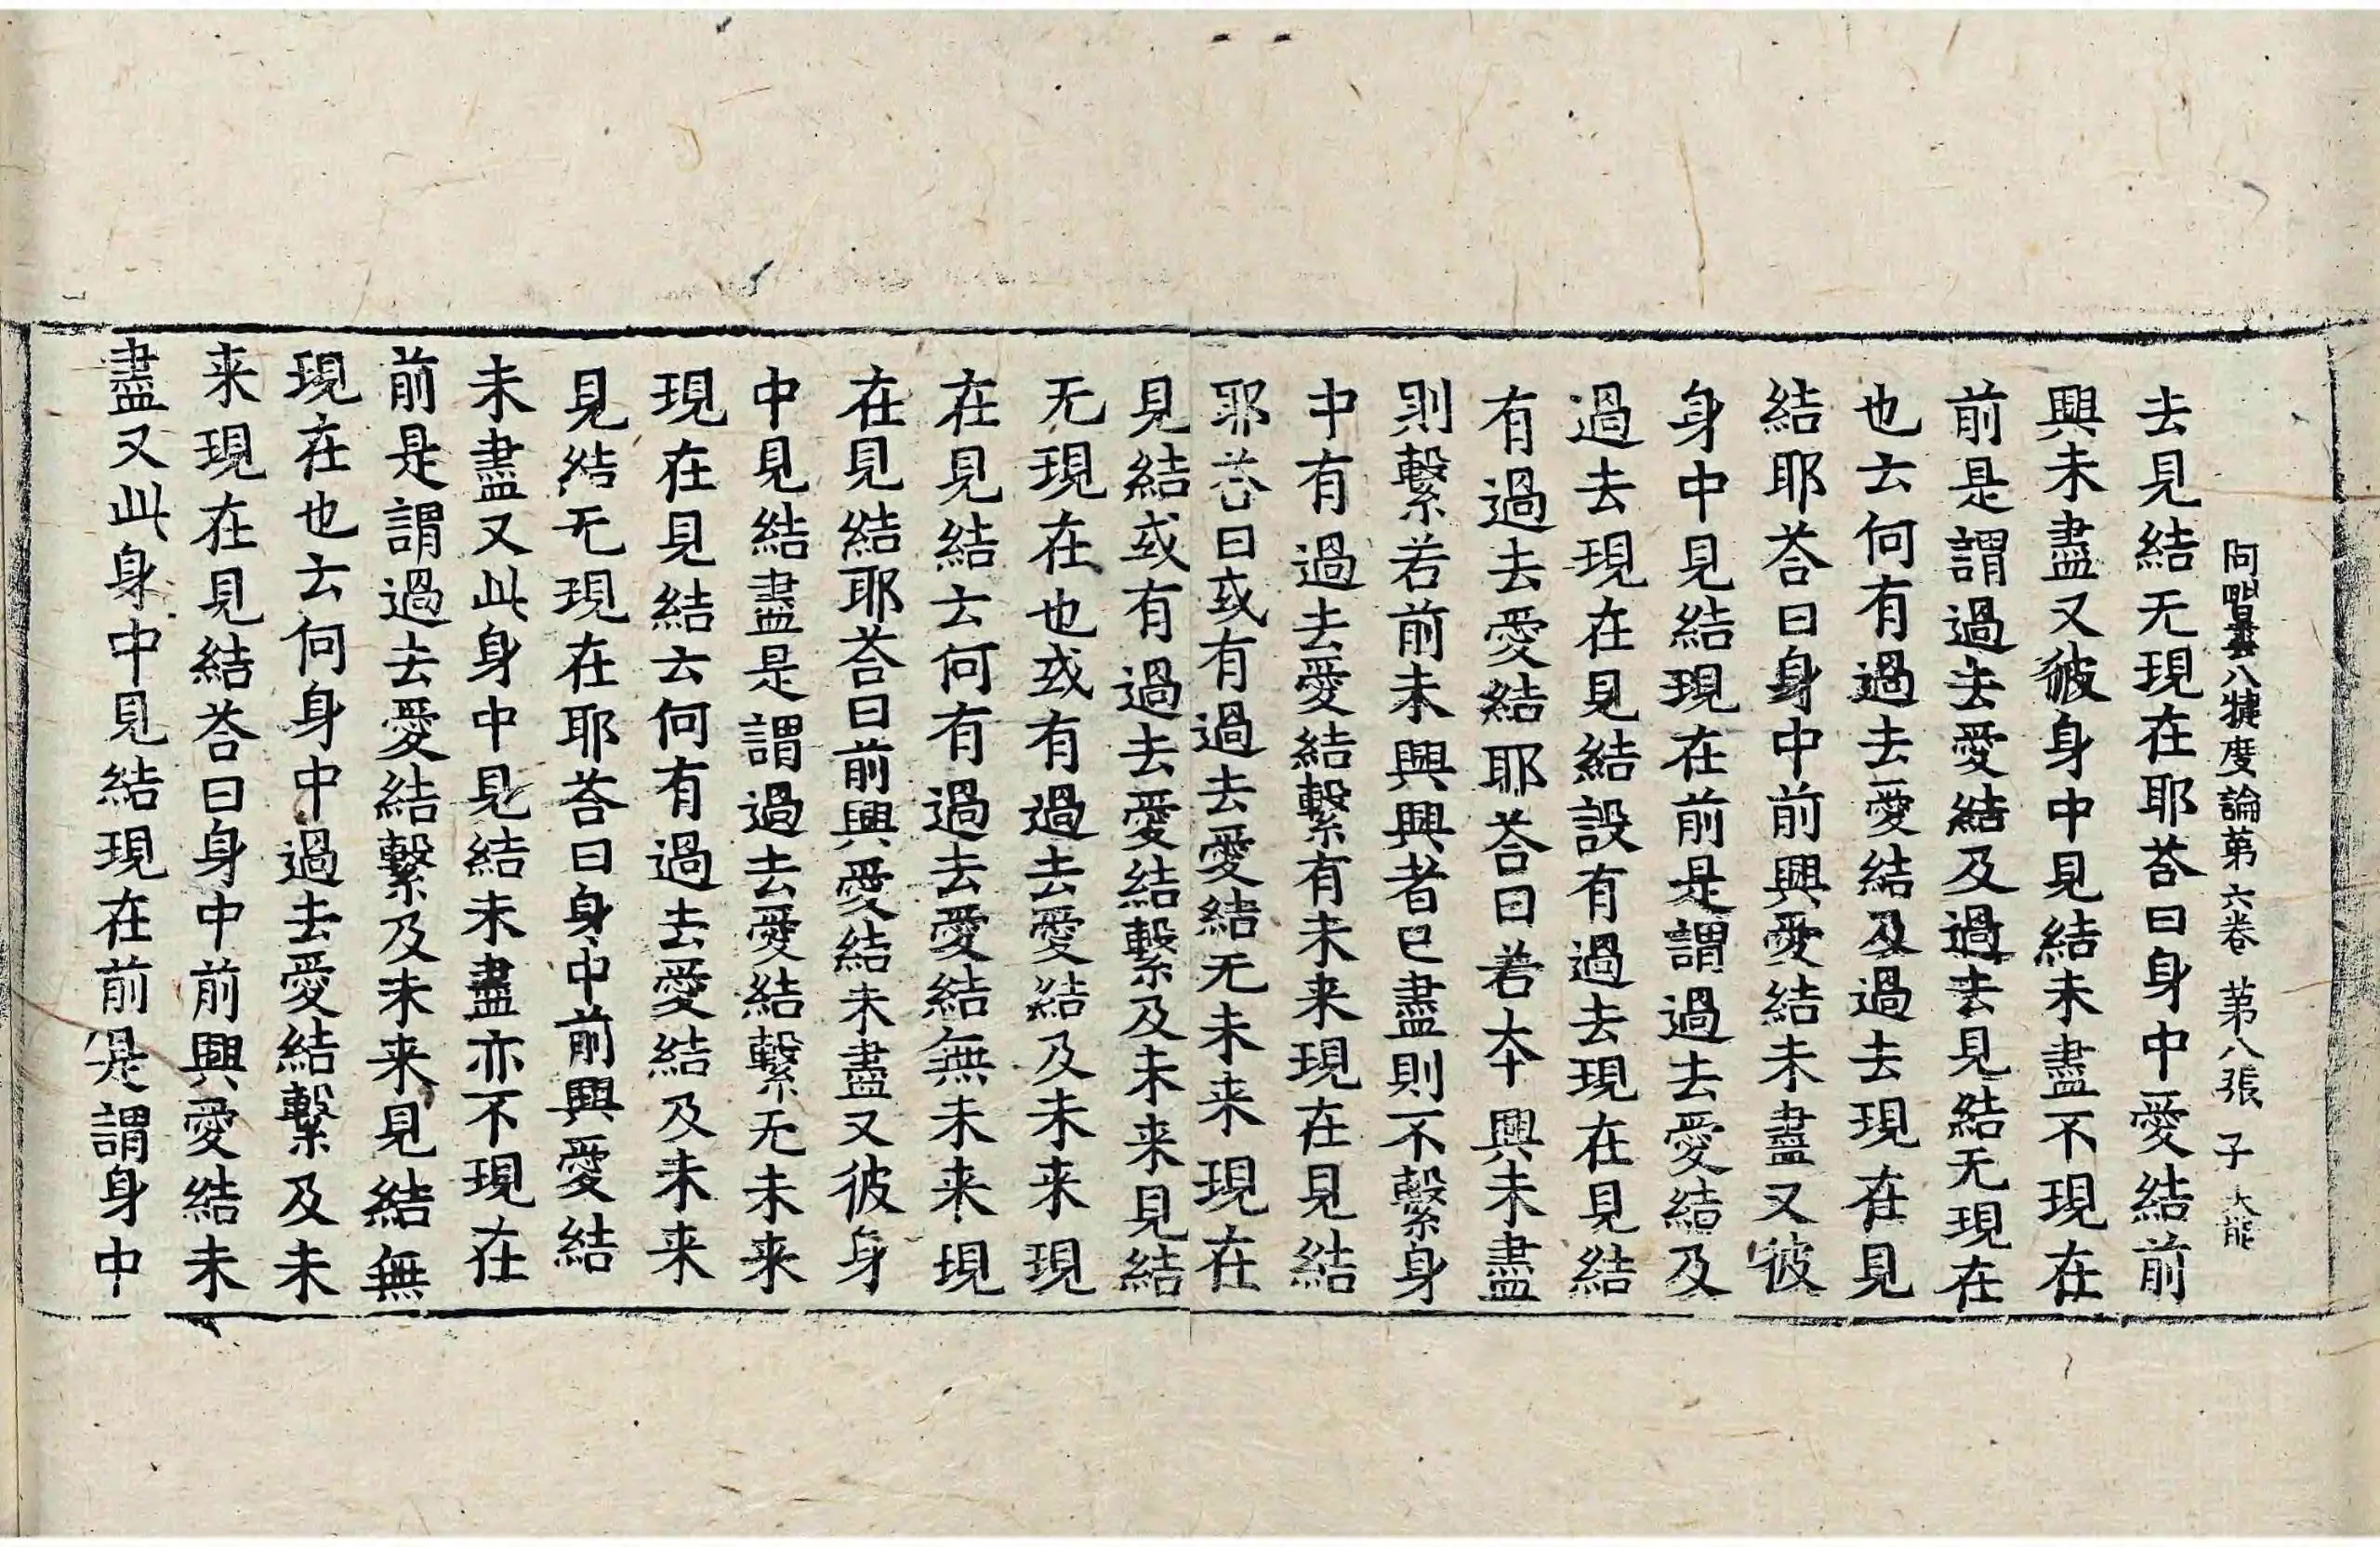 阿毗曇八犍度論第六卷 第八張 子 大能
去見結无現在耶荅曰身中愛結前
興未盡又彼身中見結未盡不現在
前是謂過去愛結及過去見結无現在
也云何有過去愛結及過去現在見
結耶荅曰身中前興愛結未盡又彼
身中見結現在前是謂過去愛結及
過去現在見結設有過去現在見結
有過去愛結耶荅曰若本興未盡
則繫若前未興興者已盡則不繫身
中有過去愛結繫有未来現在見結
耶荅曰或有過去愛結无未来現在
見結或有過去愛結繫及未来見結
无現在也或有過去愛結及未来現
在見結云何有過去愛結無未来現
在見結耶荅曰前興愛結未盡又彼身
中見結盡是謂過去愛結繫无未来
現在見結云何有過去愛結及未来
見結无現在耶荅曰身中前興愛結
未盡又此身中見結未盡亦不現在
前是謂過去愛結繫及未来見結無
現在也云何身中過去愛結繫及未
来現在見結荅曰身中前興愛結未
盡又此身中見結現在前是謂身中